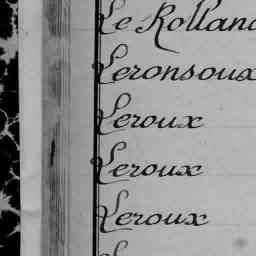 Le Rolland
Leronsoux
Leroux
Leroux
Leroux